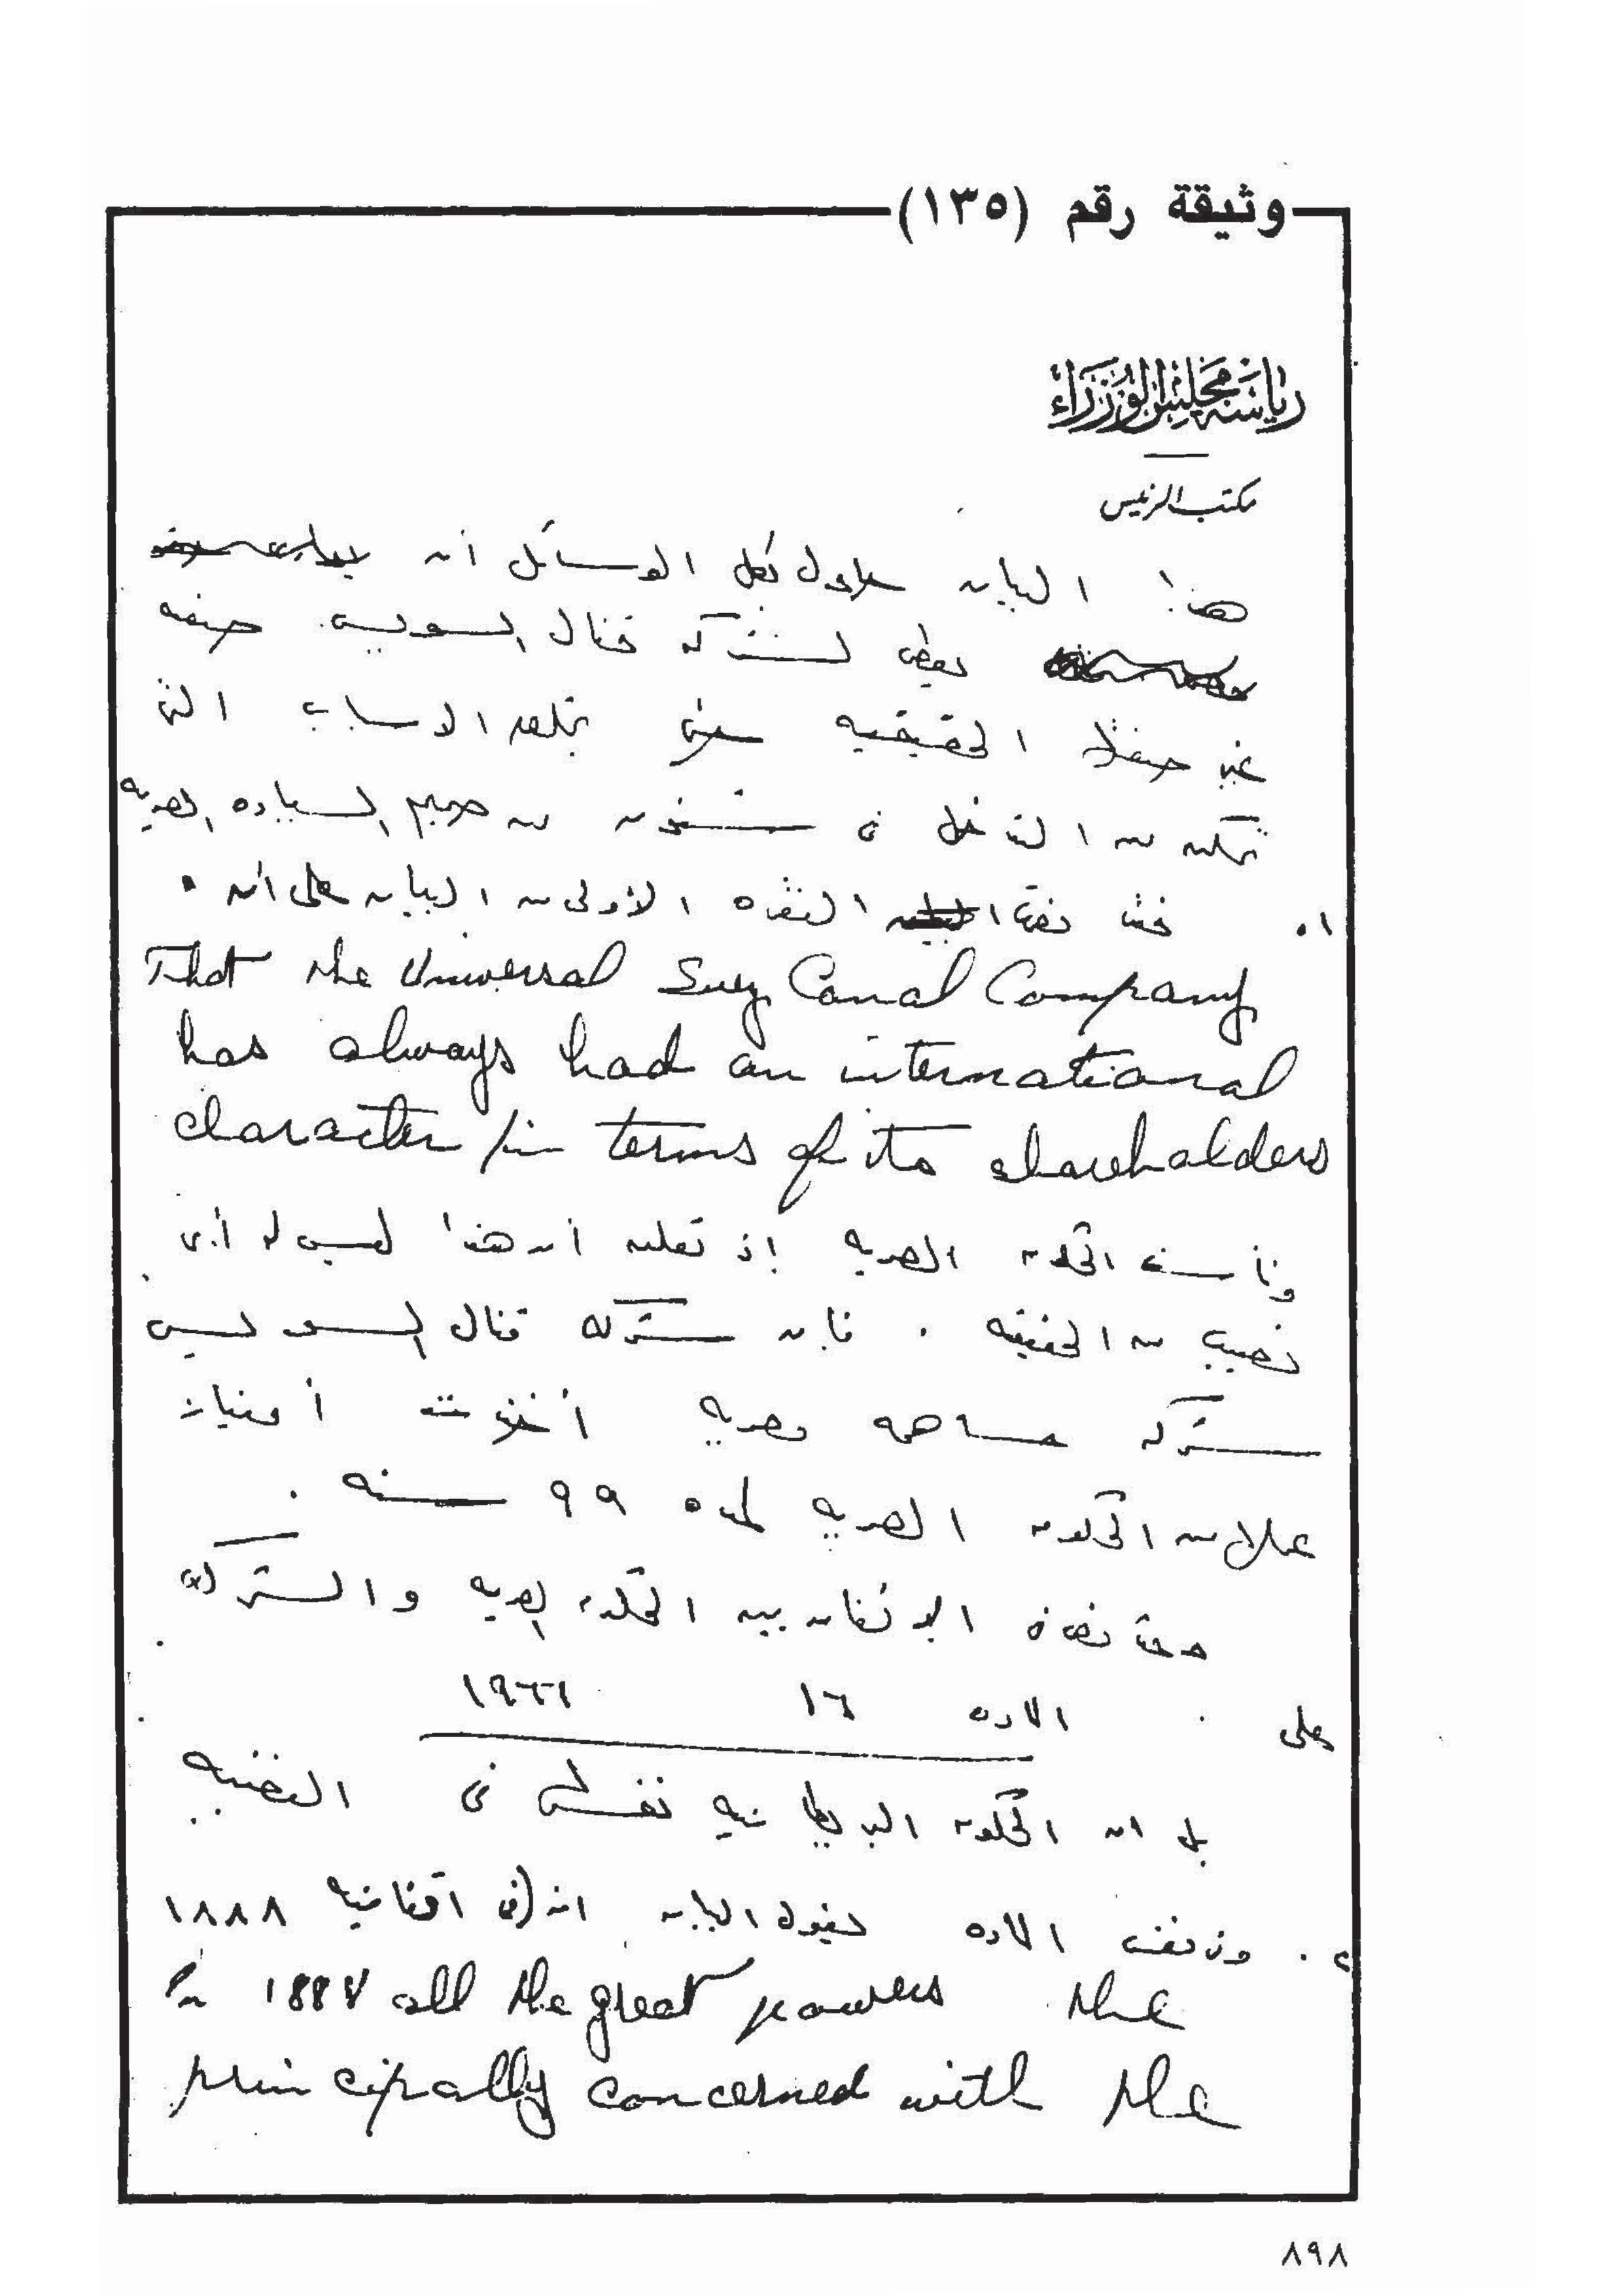 وثيقة رقم (١٣٥)
رياسة مجلس الوزراء
مكتب الرئيس
هذا البيان يحاول بكل الوسائل أن
يعطى لشركه قنال السويس صفه
غير صفتها الحقيقيه حتى يخلق الاسباب التى
تمكنه من التدخل فى شئون من صميم السياده المصريه
١. فقد نصت الفقره الأولى من البيان على أن
That the Universal Suez Canal Company
has always had an international
character in terms of its shareholders
وتأسف الحكومه المصريه إذ تعلن أن هذا ليس له أى
نصيب من الحقيقه . فإن شركه قنال السويس
شركه مساهمه مصريه أخذت أمتياز
من الحكومه المصريه لمده ٩٩ سنه .
وقد نص فى الاتفاق بين الحكومه المصريه والشركه
على الماده ١٦ ١٩٦٦
بل ان الحكومه البريطانيه نفسها فى القضيه
٢. وفى نفس الماده يقول البيان ان فى اتفاقيه ١٨٨٨
In 1888 all the great powers the
principally concerned with the
٨٩٨